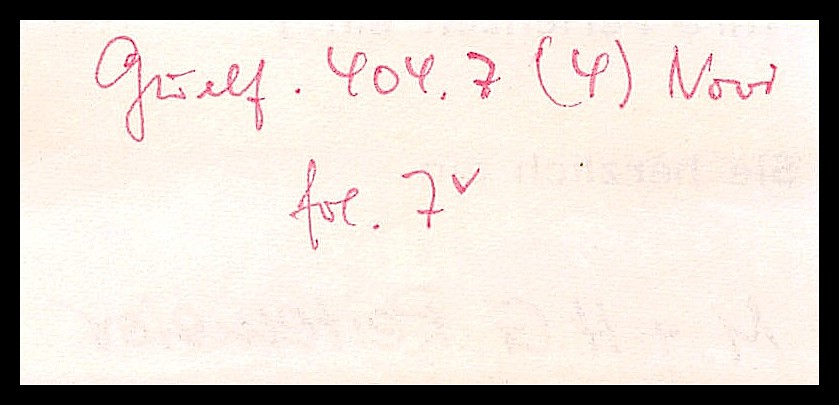 Guelf. 404.7 (4) Novi
fol. 7v